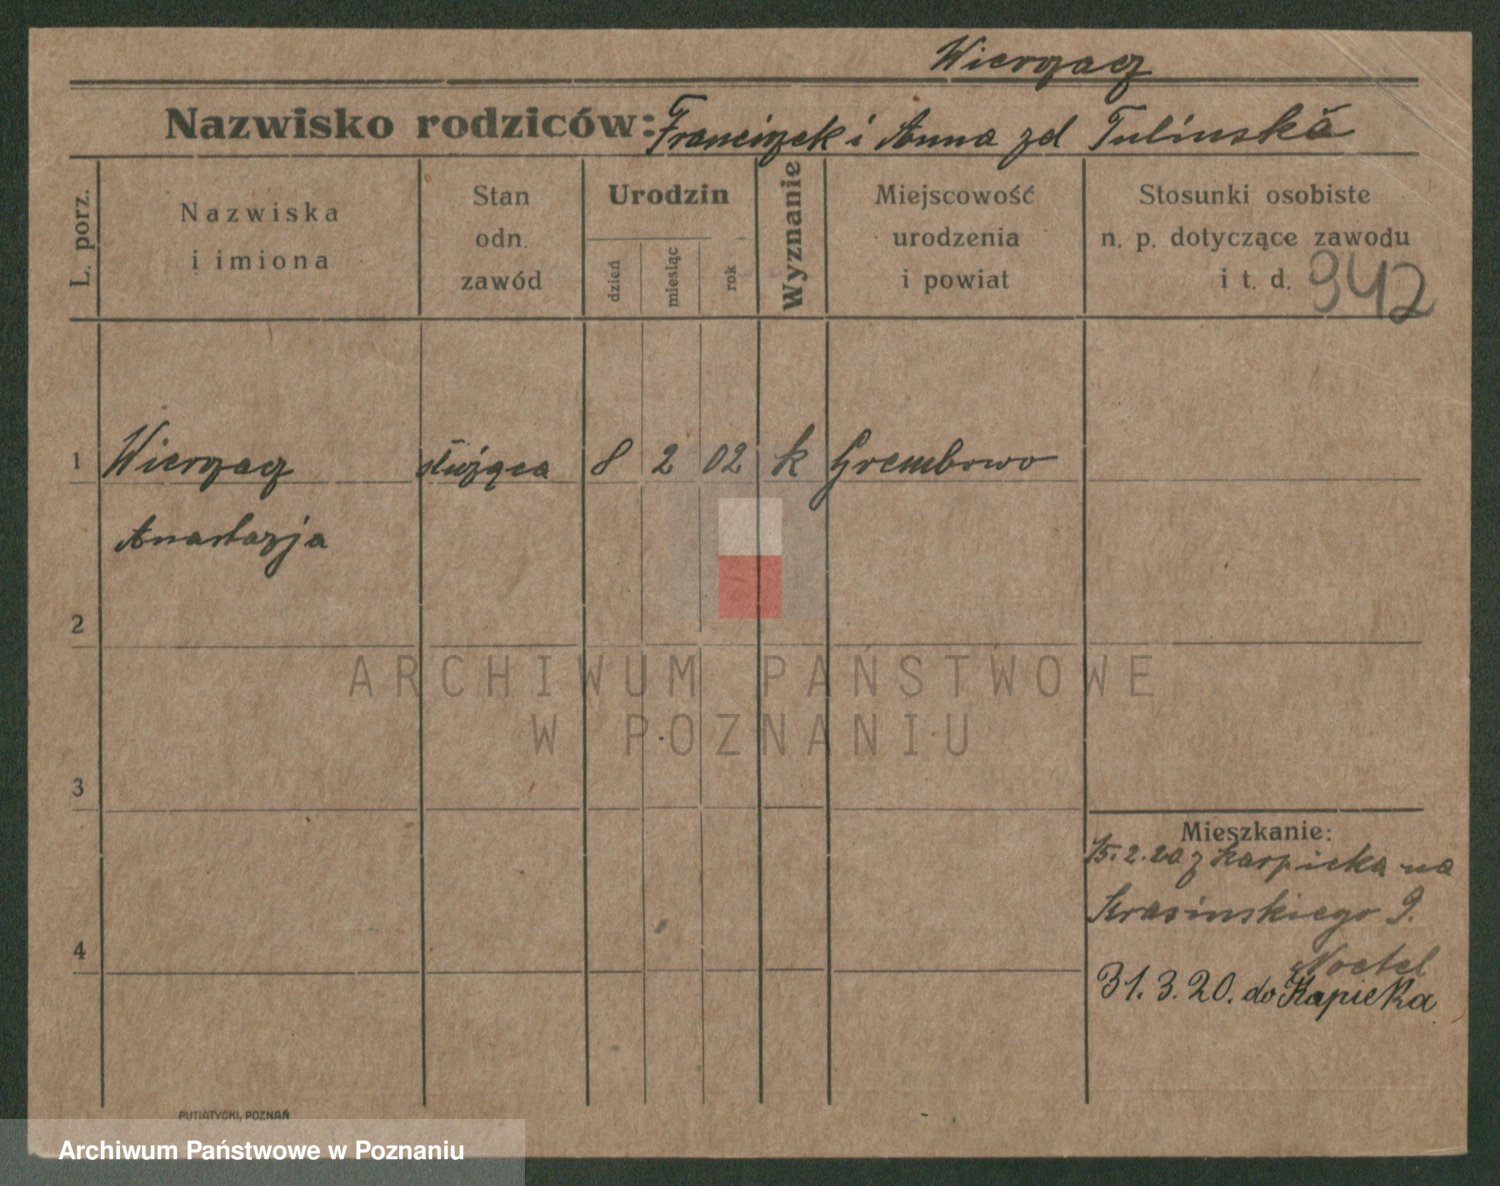 Wiergacz
Nazwisko rodziców: Franciszek i Anna zd Tulinska
L. porz.
Nazwiska
i imiona
Stan
odn.
zawód
Urodzin
dzień
miesiąc
rok
Wyznanie
Miejscowość
urodzenia
i powiat
Stosunki osobiste
n. p. dotyczące zawodu
i t. d. 942
1 służąca 8 2 02 k Grembowo
Anastazja
2
3
4
ARCHIWUM PAŃSTWOWE
W POZNANIU
Mieszkanie:
15.2.20 z Karpicka na
Krasinskiego 9.
31.3.20. do Kapicka
PUTIATYCKI, POZNAŃ
Archiwum Państwowe w Poznaniu